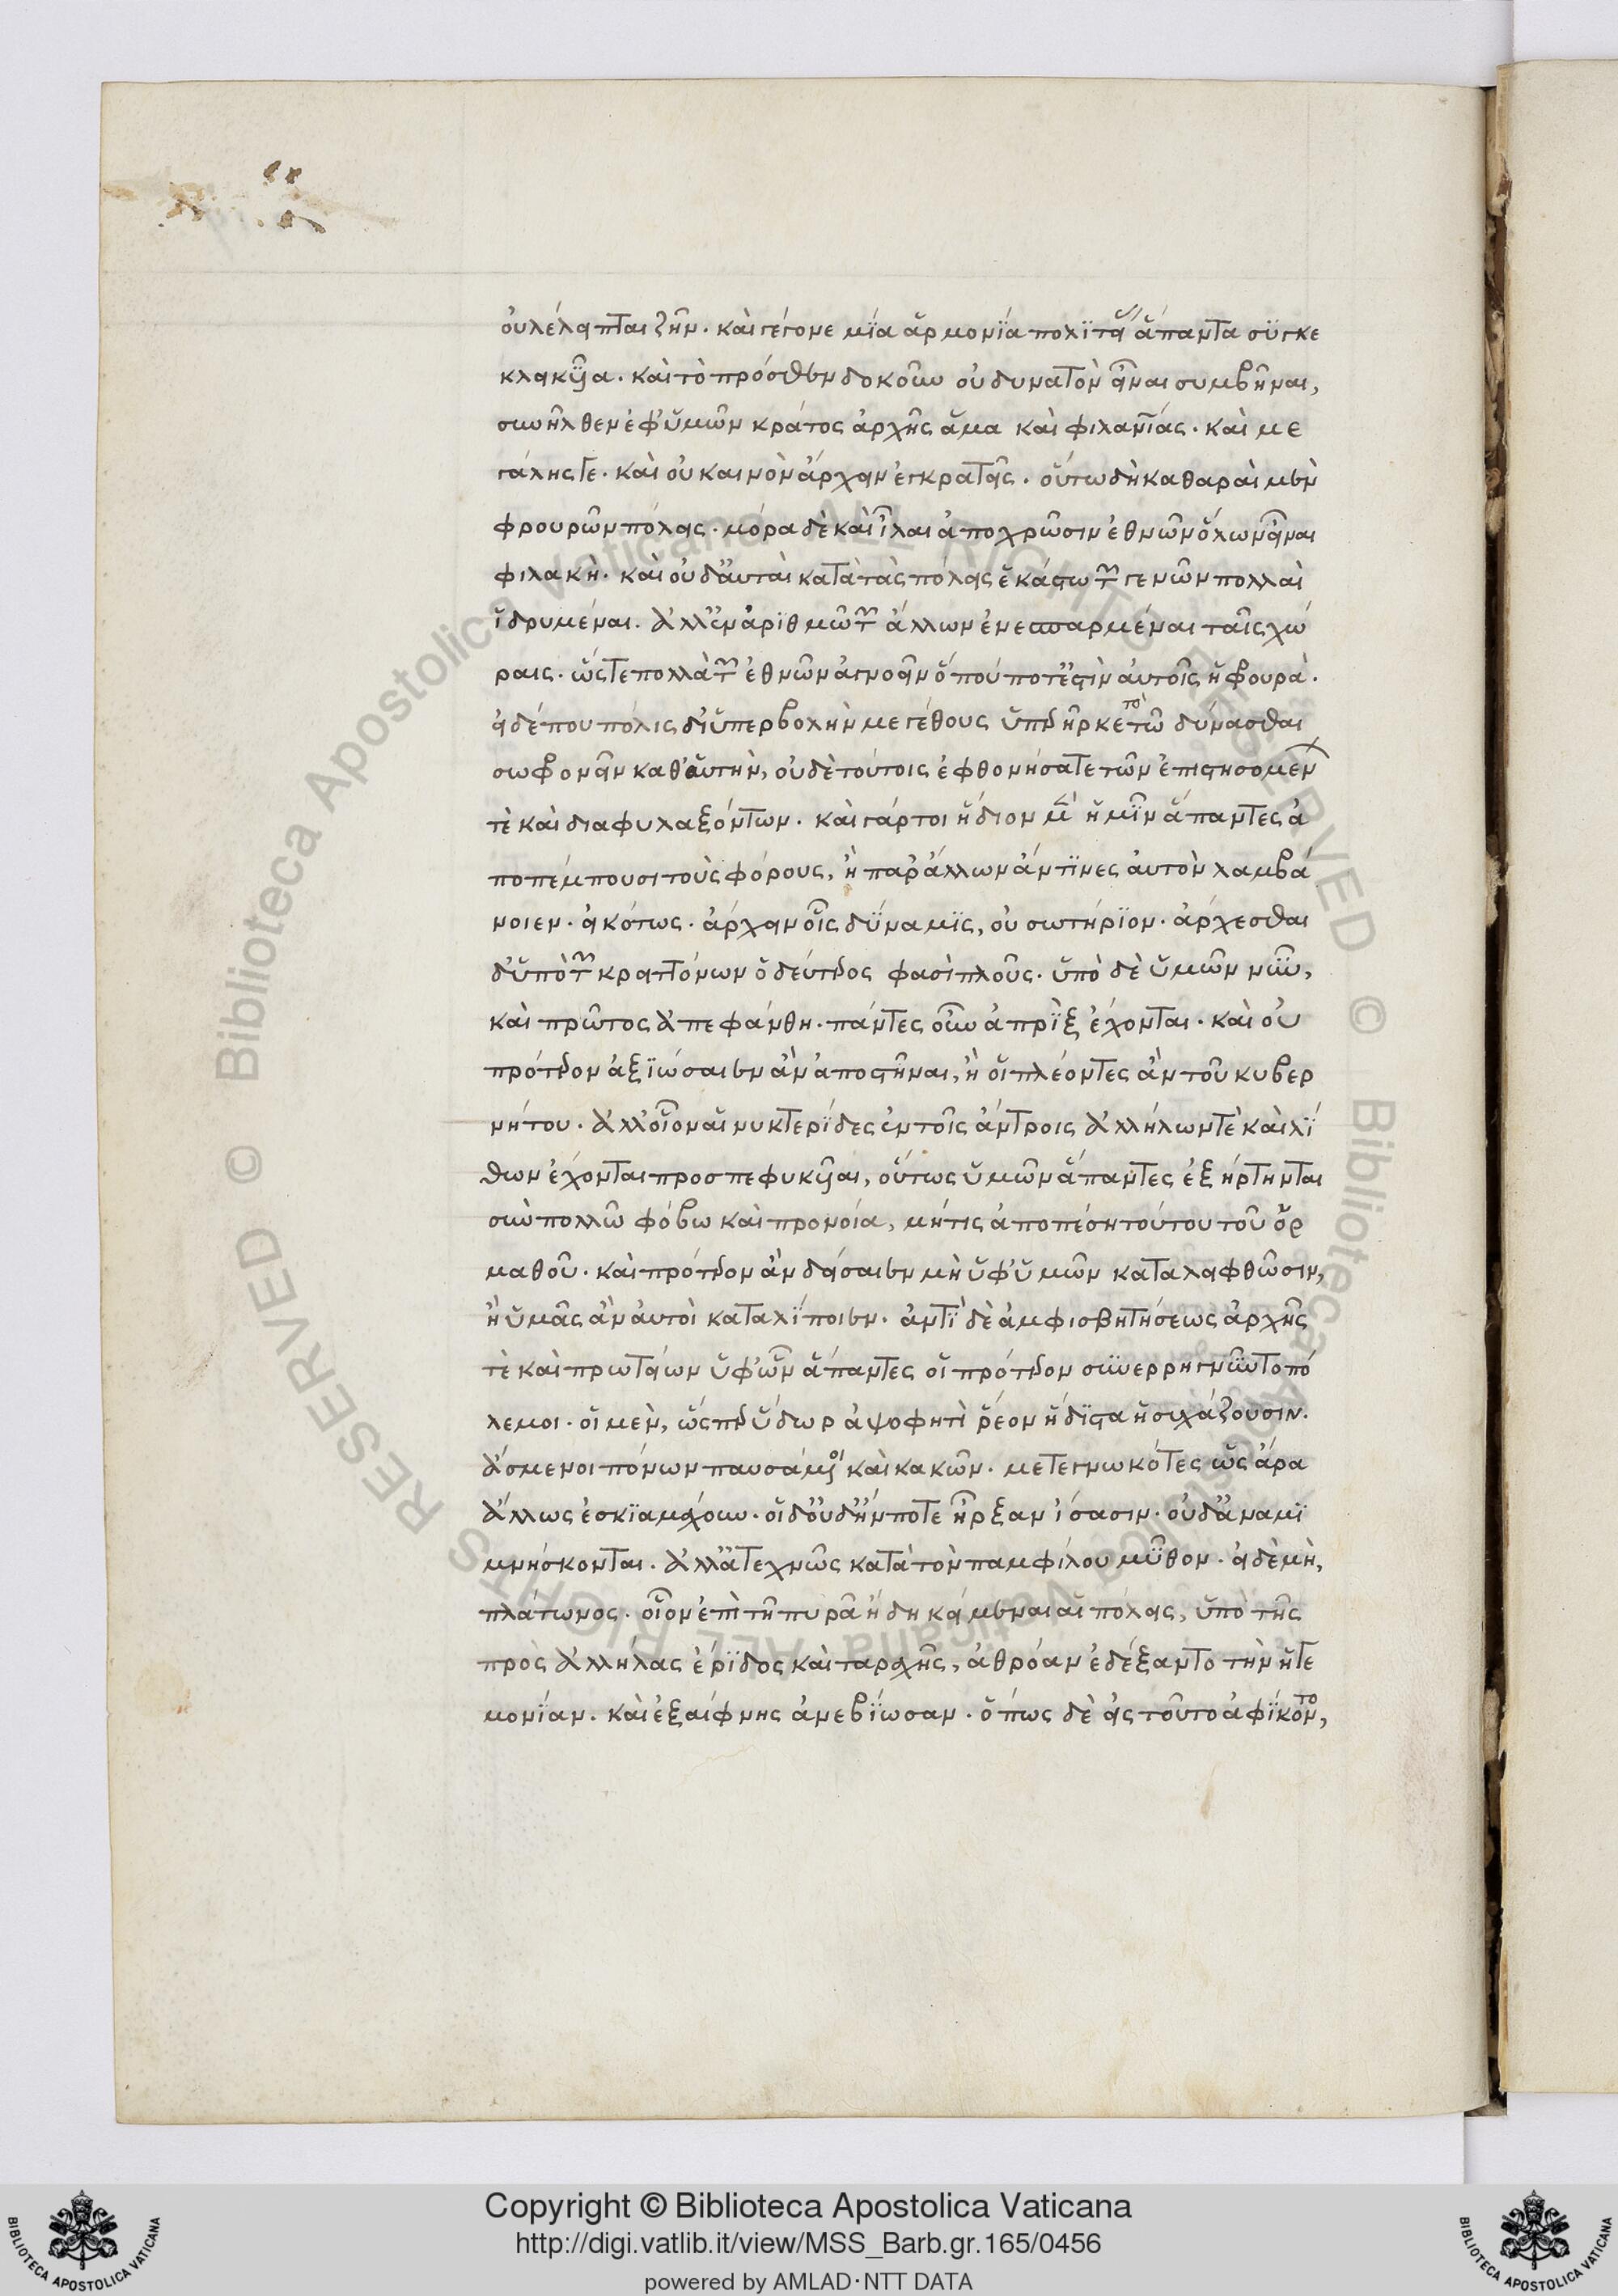 οὐ λέλειπται ζῆν. καὶ γέγονε μία ἁρμονία πολιτείας ἅπαντα συγκε
κλεικυῖα. καὶ τὸ πρόσθεν δοκοῦν οὐ δυνατὸν εἶναι συμβῆναι,
συνῆλθεν ἐφ' ὑμῶν κράτος ἀρχῆς ἅμα καὶ φιλανίας. καὶ με
γάλης γε. καὶ οὐ καινὸν ἄρχειν ἐγκρατεῖς. οὕτω δὴ καθαραὶ μὲν
φρουρῶν πόλεις. μόρα δὲ καὶ ἶλαι ἀποχρῶσιν ἐθνῶν ὅλων εἶναι
φιλακὴ. καὶ οὐδ' αὐταὶ κατὰ τὰς πόλεις ἑκάστω τῶν γενῶν πολλαὶ
ἱδρυμέναι. ἀλλ' ἐν ἀριθμῶ τῶν ἄλλων ἐνεσπαρμέναι ταῖς χώ
ραις. ὥστε πολλὰ τῶν ἐθνῶν ἀγνοεῖν ὅπου ποτ' ἐστὶν αὐτοῖς ἡ φρουρὰ.
εἰ δέ που πόλις δι' ὑπερβολὴν μεγέθους ὑπερῆρκε τὸ τῶ δύνασθαι
σωφρονεῖν καθ' αὑτὴν, οὐδὲ τούτοις ἐφθονήσατε τῶν ἐπιστησομένων
τὲ καὶ διαφυλαξόντων. καὶ γάρ τοι ἥδιον μὲν ἡμῖν ἅπαντες ἀ
ποπέμπουσι τοὺς φόρους, ἢ παρ' ἄλλων ἄν τινες αὐτὸν λαμβά
νοιεν. εἰκότως. ἄρχειν οἷς δύναμις, οὐ σωτήριον. ἄρχεσθαι
δ' ὑπὸ τῶν κρειττόνων ὁ δεύτερος φασὶ πλοῦς. ὑπὸ δὲ ὑμῶν νῦν,
καὶ πρῶτος ἀπεφάνθη. πάντες οὖν ἀπρὶξ ἔχονται. καὶ οὐ
πρότερον ἀξιώσαιεν ἂν ἀποστῆναι, ἢ οἱ πλέοντες ἂν τοῦ κυβερ
νήτου. ἀλλ' οἷον αἱ νυκτερίδες ἐν τοῖς ἄντροις ἀλλήλων τὲ καὶ λί
θων ἔχονται προσπεφυκυῖαι, οὕτως ὑμῶν ἅπαντες ἐξήρτηνται
σὺν πολλῶ φόβω καὶ προνοία, μή τις ἀποπέση τούτου τοῦ ὁρ
μαθοῦ. καὶ πρότερον ἂν δείσαιεν μὴ ὑφ' ὑμῶν καταλειφθῶσιν,
ἢ ὑμᾶς ἂν αὐτοὶ καταλίποιεν. ἀντὶ δὲ ἀμφισβητήσεως ἀρχῆς
τὲ καὶ πρωτείων ὑφ' ὧν ἅπαντες οἱ πρότερον συνερρήγνυντο πό
λεμοι. οἱ μὲν, ὥσπερ ὕδωρ ἀψοφητὶ ῥέον ἥδιστα ἡσυχάζουσιν.
ἄσμενοι πόνων παυσάμενοι καὶ κακῶν. μετεγνωκότες ὡς ἄρα
ἄλλως ἐσκιαμάχουν. οἱ δ' οὐδ' ἤν ποτε ἦρξαν ἴσασιν. οὐδ' ἀναμι
μνήσκονται. ἀλλ' ἀτεχνῶς κατὰ τὸν παμφίλου μῦθον. εἰ δὲ μὴ,
πλάτωνος. οἷον ἐπὶ τῆ πυρᾶ ἤδη κείμεναι αἱ πόλεις, ὑπὸ τῆς
πρὸς ἀλλήλας ἔριδος καὶ ταραχῆς, ἀθρόαν ἐδέξαντο τὴν ἡγε
μονίαν. καὶ ἐξαίφνης ἀνεβίωσαν. ὅπως δὲ εἰς τοῦτο ἀφίκοντο,
Copyright © Biblioteca Apostolica Vaticana
http://digi.vatlib.it/view/MSS_Barb.gr.165/0456
powered by AMLAD·NTT DATA